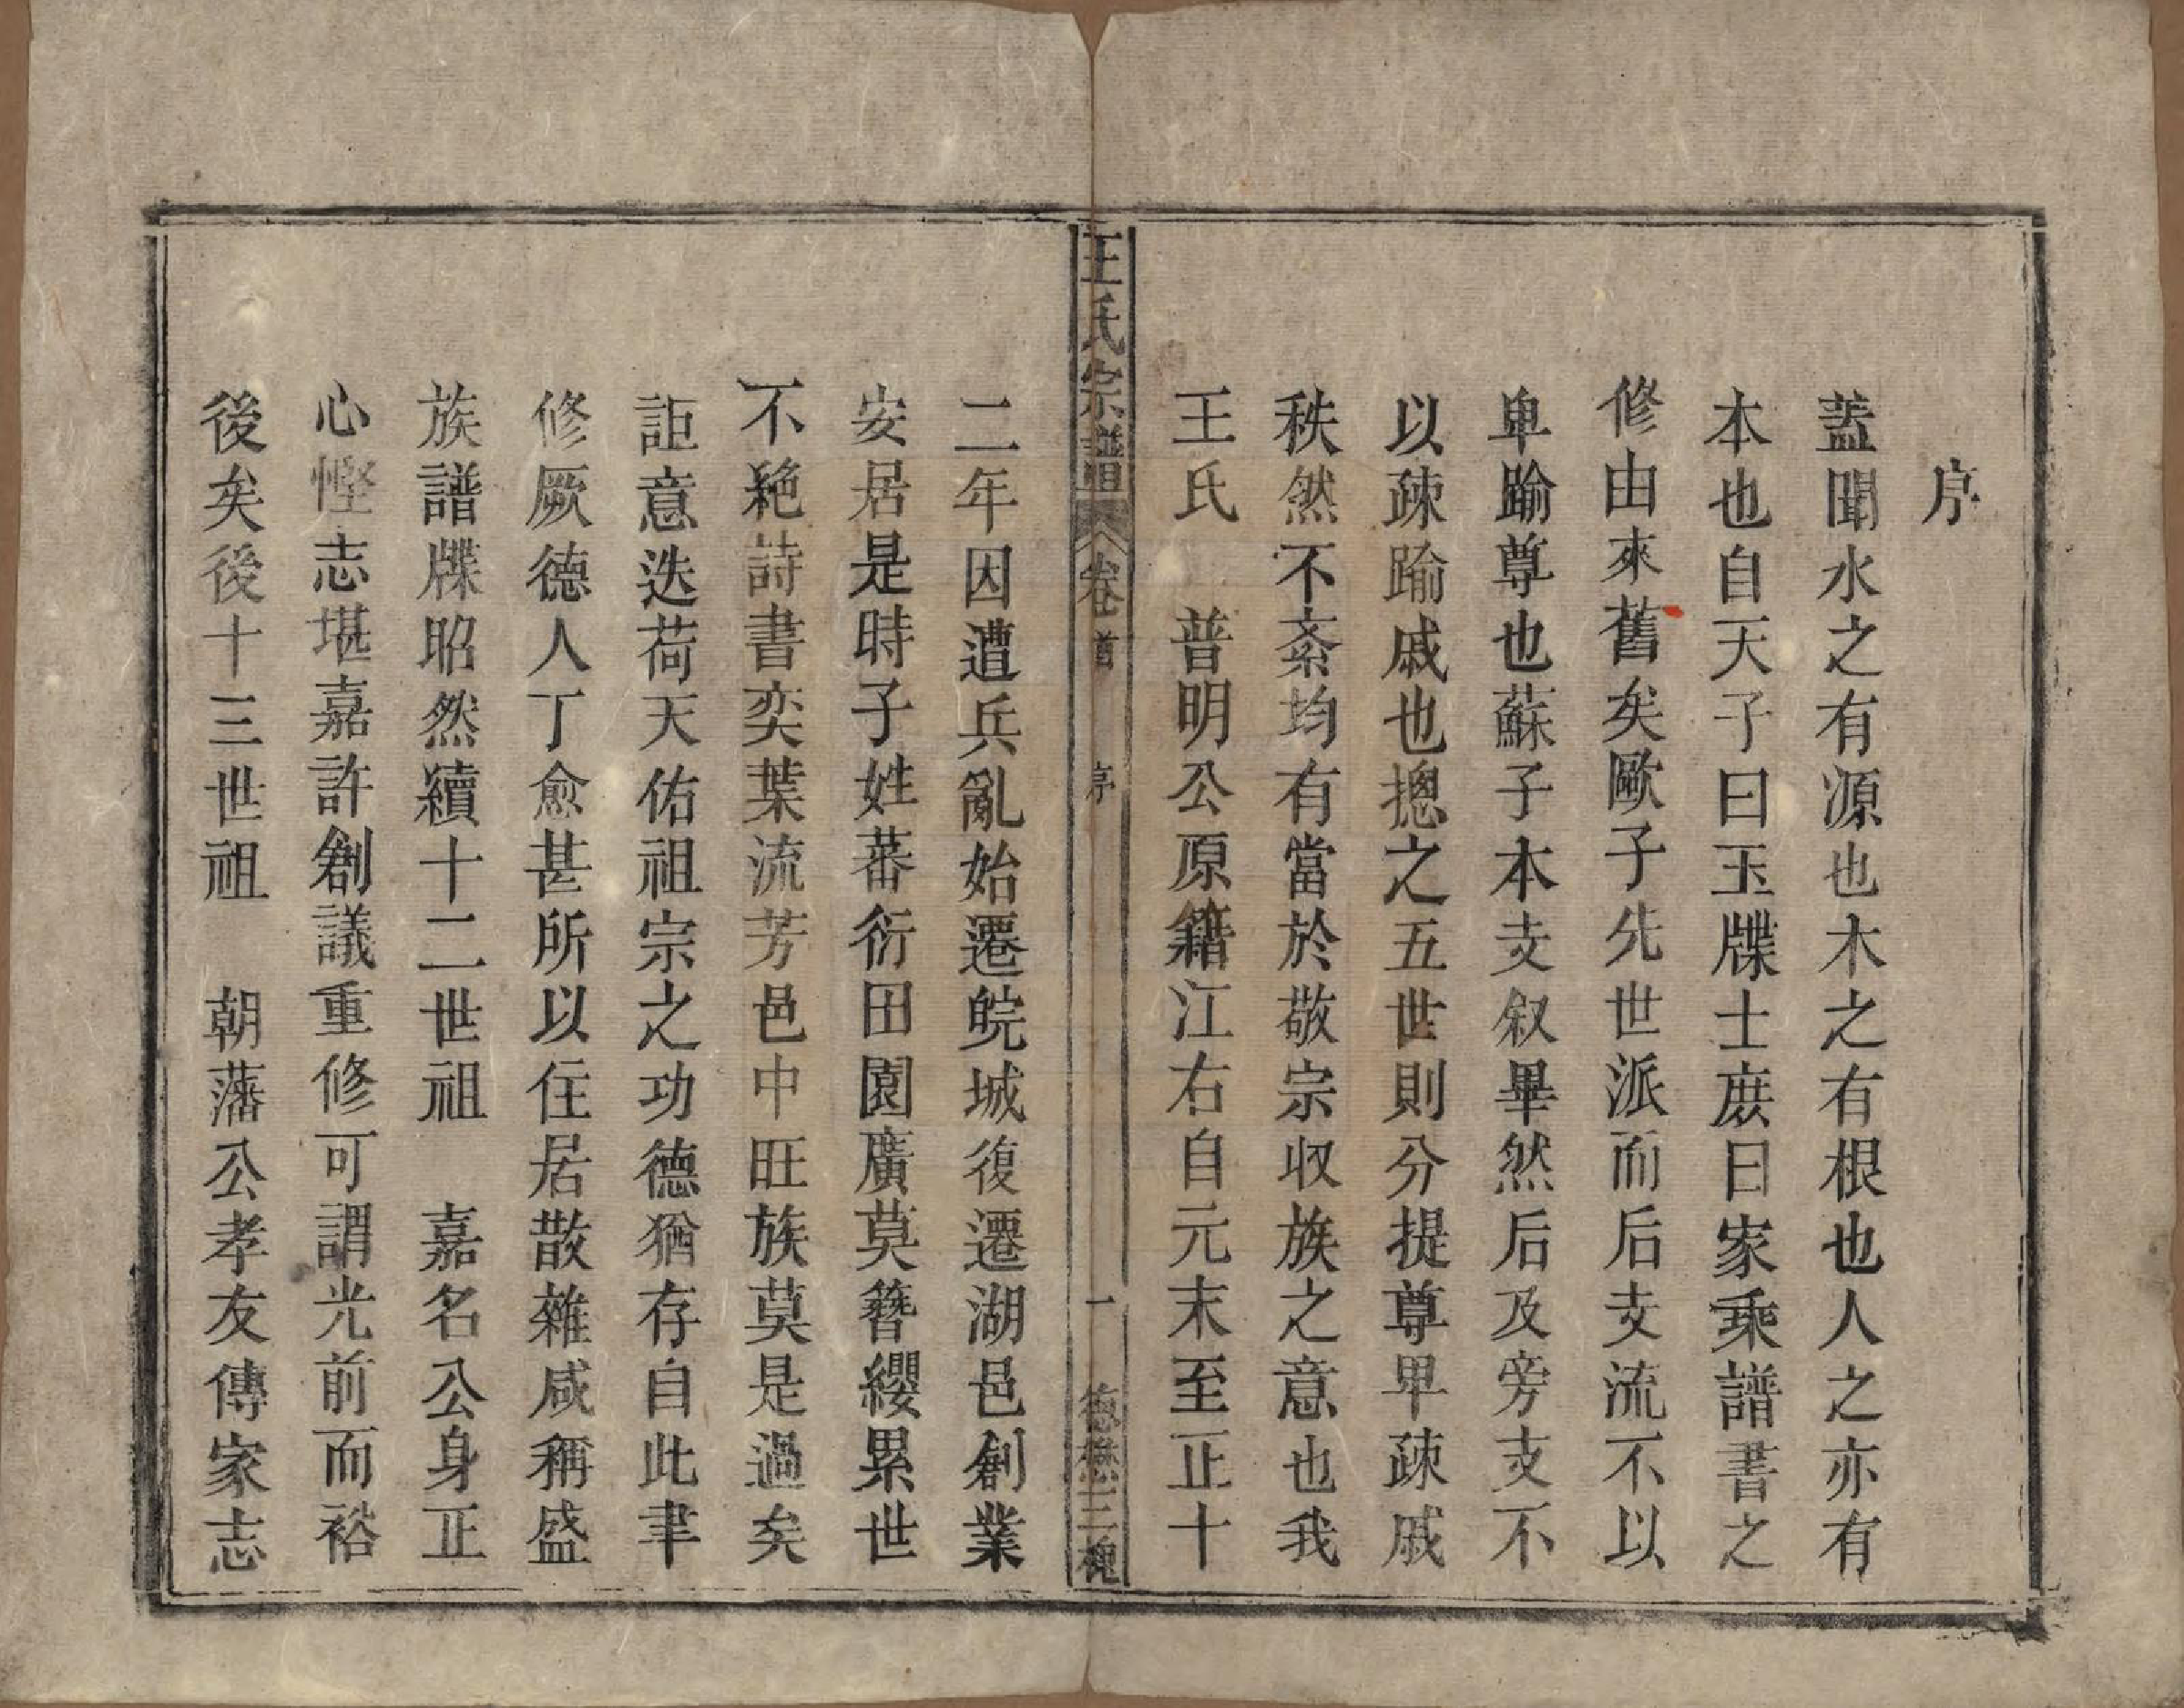 序
蓋聞水之有源也木之有根也人之亦有
本也自天子曰玉牒士庶曰家乘譜書之
修由來舊矣歐子先世派而后支流不以
卑踰尊也蘇子本支叙畢然后及旁支不
以疎踰戚也摠之五世則分提尊卑疎戚
秩然不紊均有當於敬宗収族之意也我
王氏　普明公原籍江右自元末至正十
王氏宗譜　卷首　序　一　德懋三槐
二年因遭兵亂始遷皖城復遷湖邑創業
安居是時子姓蕃衍田園廣莫簪纓累世
不絶詩書奕葉流芳邑中旺族莫是過矣
詎意迭荷天佑祖宗之功德猶存自此聿
修厥德人丁愈甚所以住居散雜咸稱盛
族譜牒昭然續十二世祖　嘉名公身正
心慳志堪嘉許創議重修可謂光前而裕
後矣後十三世祖　朝藩公孝友傳家志